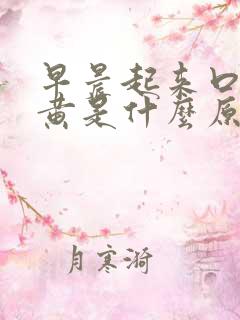 早晨起来口
黄是什麽原
月寒漪